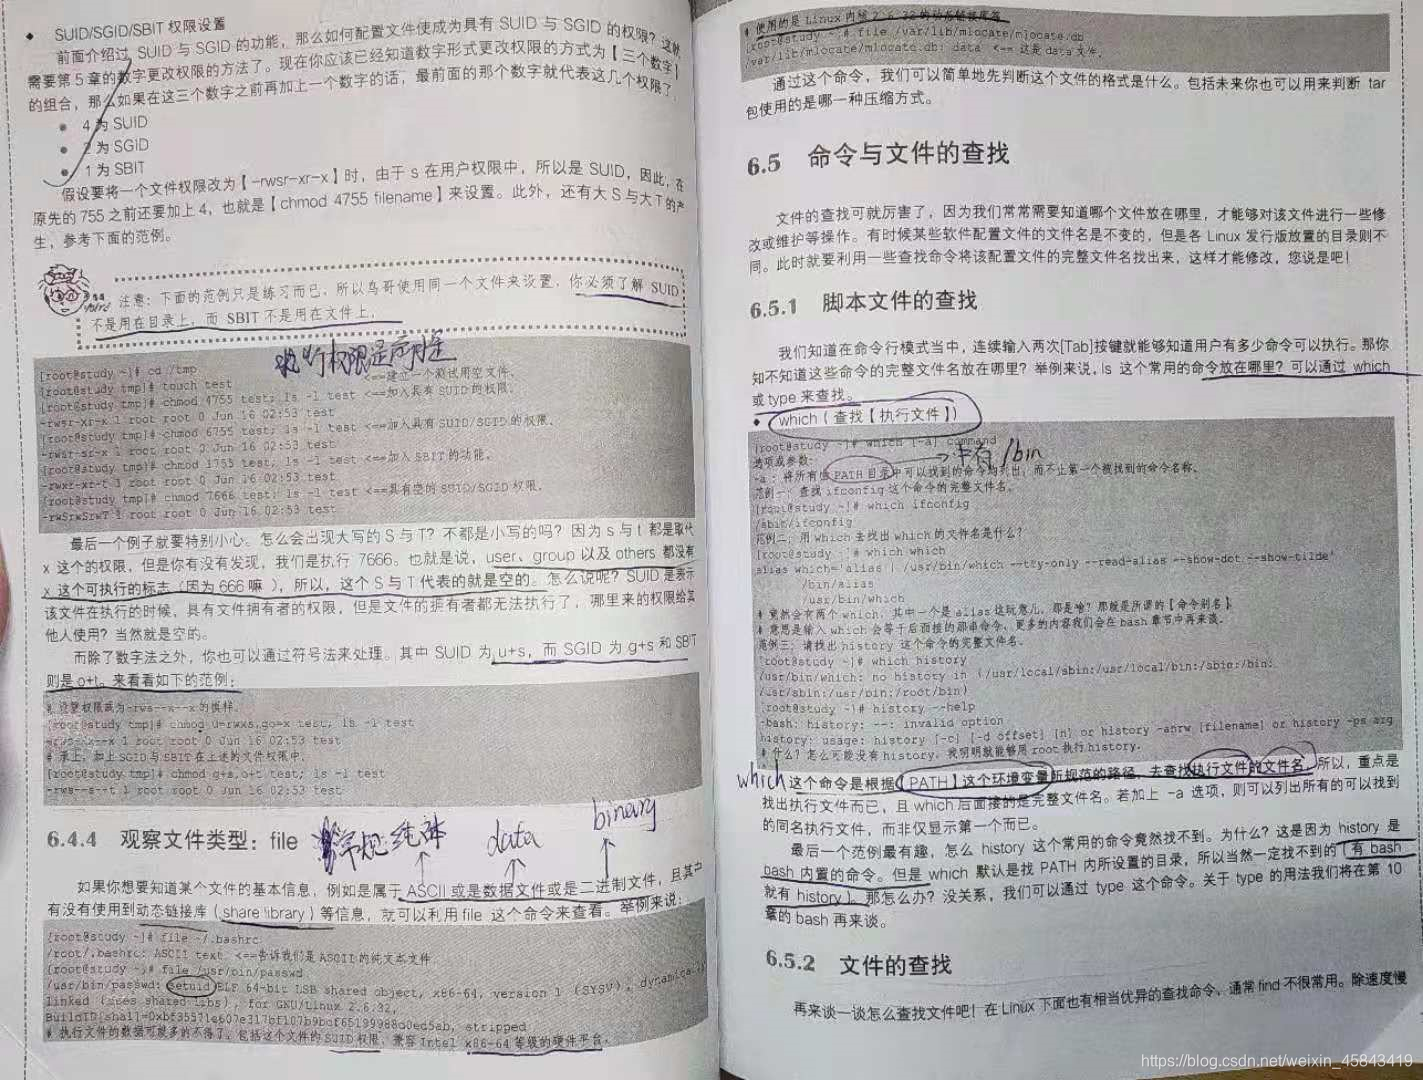 ◆ SUID/SGID/SBIT 权限设置
前面介绍过 SUID 与 SGID 的功能，那么如何配置文件使成为具有 SUID 与 SGID 的权限？这就
需要第 5 章的数字更改权限的方法了。现在你应该已经知道数字形式更改权限的方式为【三个数字】
的组合，那么如果在这三个数字之前再加上一个数字的话，最前面的那个数字就代表这几个权限了。
● 4 为 SUID
● 2 为 SGID
● 1 为 SBIT
假设要将一个文件权限改为【-rwsr-xr-x】时，由于 s 在用户权限中，所以是 SUID，因此，在
原先的 755 之前还要加上 4，也就是【chmod 4755 filename】来设置。此外，还有大 S 与大 T 的产
生，参考下面的范例。
注意：下面的范例只是练习而已，所以鸟哥使用同一个文件来设置，你必须了解 SUID
不是用在目录上，而 SBIT 不是用在文件上。
执行权限是否存在
[root@study ~]# cd /tmp
[root@study tmp]# touch test <==建立一个测试用空文件。
[root@study tmp]# chmod 4755 test; ls -l test <==加入具有 SUID 的权限。
-rwsr-xr-x 1 root root 0 Jun 16 02:53 test
[root@study tmp]# chmod 6755 test; ls -l test <==加入具有 SUID/SGID 的权限。
-rwsr-sr-x 1 root root 0 Jun 16 02:53 test
[root@study tmp]# chmod 1755 test; ls -l test <==加入 SBIT 的功能。
-rwxr-xr-t 1 root root 0 Jun 16 02:53 test
[root@study tmp]# chmod 7666 test; ls -l test <==具有空的 SUID/SGID 权限。
-rwSrwSrwT 1 root root 0 Jun 16 02:53 test
最后一个例子就要特别小心。怎么会出现大写的 S 与 T？不都是小写的吗？因为 s 与 t 都是取代
x 这个的权限，但是你有没有发现，我们是执行 7666。也就是说，user、group 以及 others 都没有
x 这个可执行的标志（因为 666 嘛），所以，这个 S 与 T 代表的就是空的。怎么说呢？SUID 是表示
该文件在执行的时候，具有文件拥有者的权限，但是文件的拥有者都无法执行了，哪里来的权限给其
他人使用？当然就是空的。
而除了数字法之外，你也可以通过符号法来处理。其中 SUID 为 u+s，而 SGID 为 g+s 和 SBIT
则是 o+t。来看看如下的范例：
# 设置权限成为-rws--x--x 的模样。
[root@study tmp]# chmod u=rwxs,go=x test; ls -l test
-rws--x--x 1 root root 0 Jun 16 02:53 test
# 承上，加上 SGID 与 SBIT 在上述的文件权限中。
[root@study tmp]# chmod g+s,o+t test; ls -l test
-rws--s--t 1 root root 0 Jun 16 02:53 test
6.4.4 观察文件类型：file
data
binary
如果你想要知道某个文件的基本信息，例如是属于 ASCII 或是数据文件或是二进制文件，且其中
有没有使用到动态链接库（share library）等信息，就可以利用 file 这个命令来查看。举例来说：
[root@study ~]# file ~/.bashrc
/root/.bashrc: ASCII text <==告诉我们是 ASCII 的纯文本文件。
[root@study ~]# file /usr/bin/passwd
/usr/bin/passwd: setuid ELF 64-bit LSB shared object, x86-64, version 1 (SYSV), dynamically
linked (uses shared libs), for GNU/Linux 2.6.32,
stripped
# 执行文件的数据可就多的不得了，包括这个文件的 SUID 权限、兼容 Intel x86-64 等级的硬件平台。
# 使用的是 Linux 内核 2.6.32 的动态链接库等
[root@study ~]# file /var/lib/mlocate/mlocate.db
/var/lib/mlocate/mlocate.db: data <== 这是 data 文件。
通过这个命令，我们可以简单地先判断这个文件的格式是什么。包括未来你也可以用来判断 tar
包使用的是哪一种压缩方式。
6.5 命令与文件的查找
文件的查找可就厉害了，因为我们常常需要知道哪个文件放在哪里，才能够对该文件进行一些修
改或维护等操作。有时候某些软件配置文件的文件名是不变的，但是各 Linux 发行版放置的目录则不
同。此时就要利用一些查找命令将该配置文件的完整文件名找出来，这样才能修改，您说是吧！
6.5.1 脚本文件的查找
我们知道在命令行模式当中，连续输入两次[Tab]按键就能够知道用户有多少命令可以执行。那你
知不知道这些命令的完整文件名放在哪里？举例来说，ls 这个常用的命令放在哪里？可以通过 which
或 type 来查找。
◆ which（查找【执行文件】）
[root@study ~]# which [-a] command
选项或参数：
/bin
-a ：将所有由 PATH 目录中可以找到的命令均列出，而不止第一个被找到的命令名称。
范例一：查找 ifconfig 这个命令的完整文件名。
[root@study ~]# which ifconfig
/sbin/ifconfig
范例二：用 which 去找出 which 的文件名是什么？
[root@study ~]# which which
alias which='alias | /usr/bin/which --tty-only --read-alias --show-dot --show-tilde'
/bin/alias
/usr/bin/which
# 竟然会有两个 which，其中一个是 alias 这玩意儿，那是啥？那就是所谓的【命令别名】
# 意思是输入 which 会等于后面接的那串命令，更多的内容我们会在 bash 章节中再来谈。
范例三：请找出 history 这个命令的完整文件名。
[root@study ~]# which history
/usr/bin/which: no history in (/usr/local/sbin:/usr/local/bin:/sbin:/bin:
/usr/sbin:/usr/bin:/root/bin)
[root@study ~]# history --help
-bash: history: --: invalid option
history: usage: history [-c] [-d offset] [n] or history -anrw [filename] or history -ps arg
# 什么？怎么可能没有 history，我明明就能够用 root 执行 history。
which
这个命令是根据【PATH】这个环境变量所规范的路径，去查找执行文件的文件名。所以，重点是
找出执行文件而已，且 which 后面接的是完整文件名。若加上 -a 选项，则可以列出所有的可以找到
的同名执行文件，而非仅显示第一个而已。
最后一个范例最有趣，怎么 history 这个常用的命令竟然找不到。为什么？这是因为 history 是
bash 内置的命令。但是 which 默认是找 PATH 内所设置的目录，所以当然一定找不到的（有 bash
就有 history）。那怎么办？没关系，我们可以通过 type 这个命令。关于 type 的用法我们将在第 10
章的 bash 再来谈。
6.5.2 文件的查找
再来谈一谈怎么查找文件吧！在 Linux 下面也有相当优异的查找命令、通常 find 不很常用。除速度慢
https://blog.csdn.net/weixin_45843419